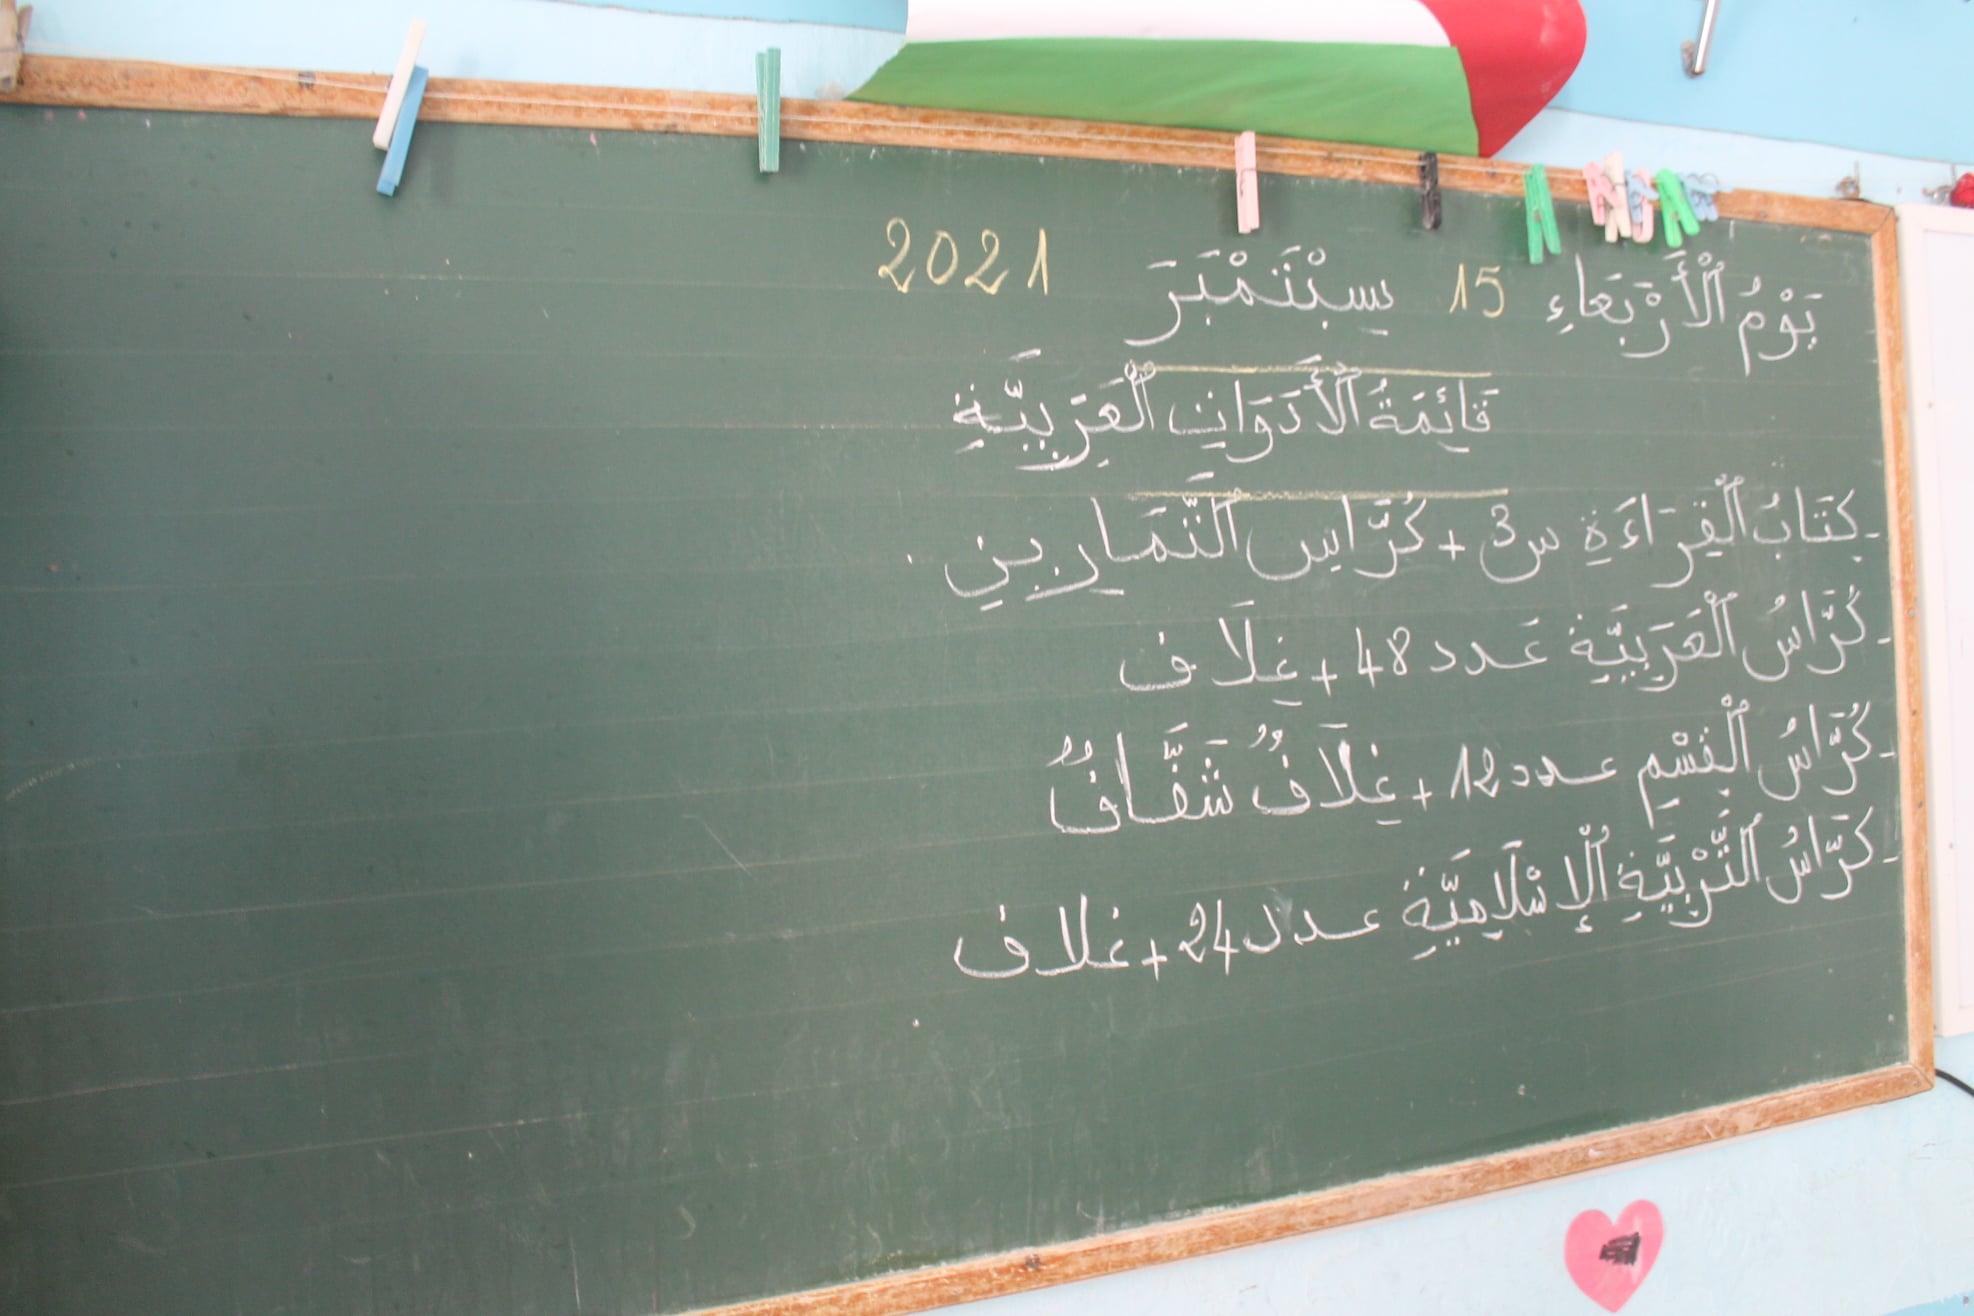 يَوْمُ ٱلْأَرْبَعاءِ 15 سِبْتَمْبَرَ 2021
قَائِمَةُ ٱلْأَدَوَاتِ ٱلْعَرَبِيَّةِ
- كِتَابُ ٱلْقِرَاءَةِ س3 + كُرَّاسِ ٱلتَّمَارِينِ
- كُرَّاسُ ٱلْعَرَبِيَّةِ عَدد 48 + غِلَاف
- كُرَّاسُ ٱلْقِسْمِ عدد 12 + غِلَافٌ شَفَّافٌ
- كُرَّاسُ ٱلتَّرْبِيَّةِ ٱلْإِسْلَامِيَّةِ عدد 24 + غلاف